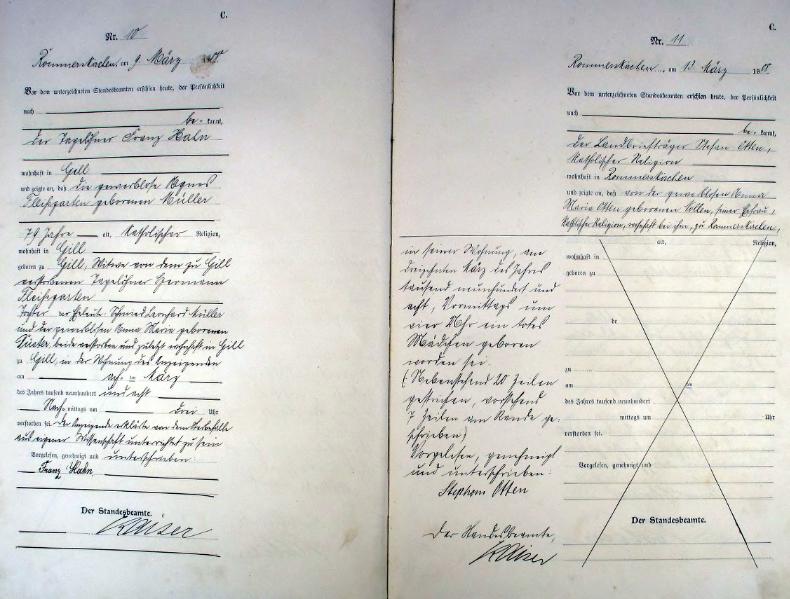 C.
Nr. 10
Rommerskirchen, am 9 März 1908
Vor dem unterzeichneten Standesbeamten erschien heute, der Persönlichkeit
nach
be- kannt,
der Tagelöhner Franz Hahn
wohnhaft in Gill
und zeigte an, daß die gewerblose Agnes
Fleischgarten geborenen Müller
79 Jahre alt, katholischer Religion,
wohnhaft in Gill
geboren zu Gill, Witwe von dem zu Gill
verstorbenen Tagelöhner Hermann
Fleischgarten
Tochter der Eheleute: Schmied Leonhard Müller
und der gewerblosen Anna Maria geborenen
beide verstorben und zuletzt wohnhaft in Gill
zu Gill, in der Wohnung des Anzeigenden
am achten März
des Jahres tausend neunhundert und acht
Nachmittags um drei Uhr
verstorben sei. Der Anzeigende erklärte von dem Sterbefalle
aus eigener Wissenschaft unterrichtet zu sein
Vorgelesen, genehmigt und unterschrieben
Franz Hahn
Der Standesbeamte.
Kaiser
C.
Nr. 11
Rommerskirchen, am 13 März 1908
Vor dem unterzeichneten Standesbeamten erschien heute, der Persönlichkeit
nach
be- kannt,
der Landbriefträger Stefan Otten,
katholischer Religion
wohnhaft in Rommerskirchen
und zeigte an, daß von der gewerblosen Anna
Maria Otten geborenen Vollen, seiner Ehefrau,
katholischer Religion, wohnhaft bei ihm, zu Rommerskirchen,
in seiner Wohnung, am
dreizehnten März des Jahres
tausend neunhundert und
acht, Vormittags um
vier Uhr ein totes
Mädchen geboren
worden sei.
(Nebenstehend 20 Zeilen
gestrichen, vorstehend
7 Zeilen am Rande ge-
schrieben)
Vorgelesen, genehmigt
und unterschrieben:
Stephan Otten
Der Standesbeamte,
Kaiser
alt, Religion,
wohnhaft in
geboren zu
de
zu
am
des Jahres tausend neunhundert
mittags um Uhr
verstorben sei.
Vorgelesen, genehmigt und
Der Standesbeamte.